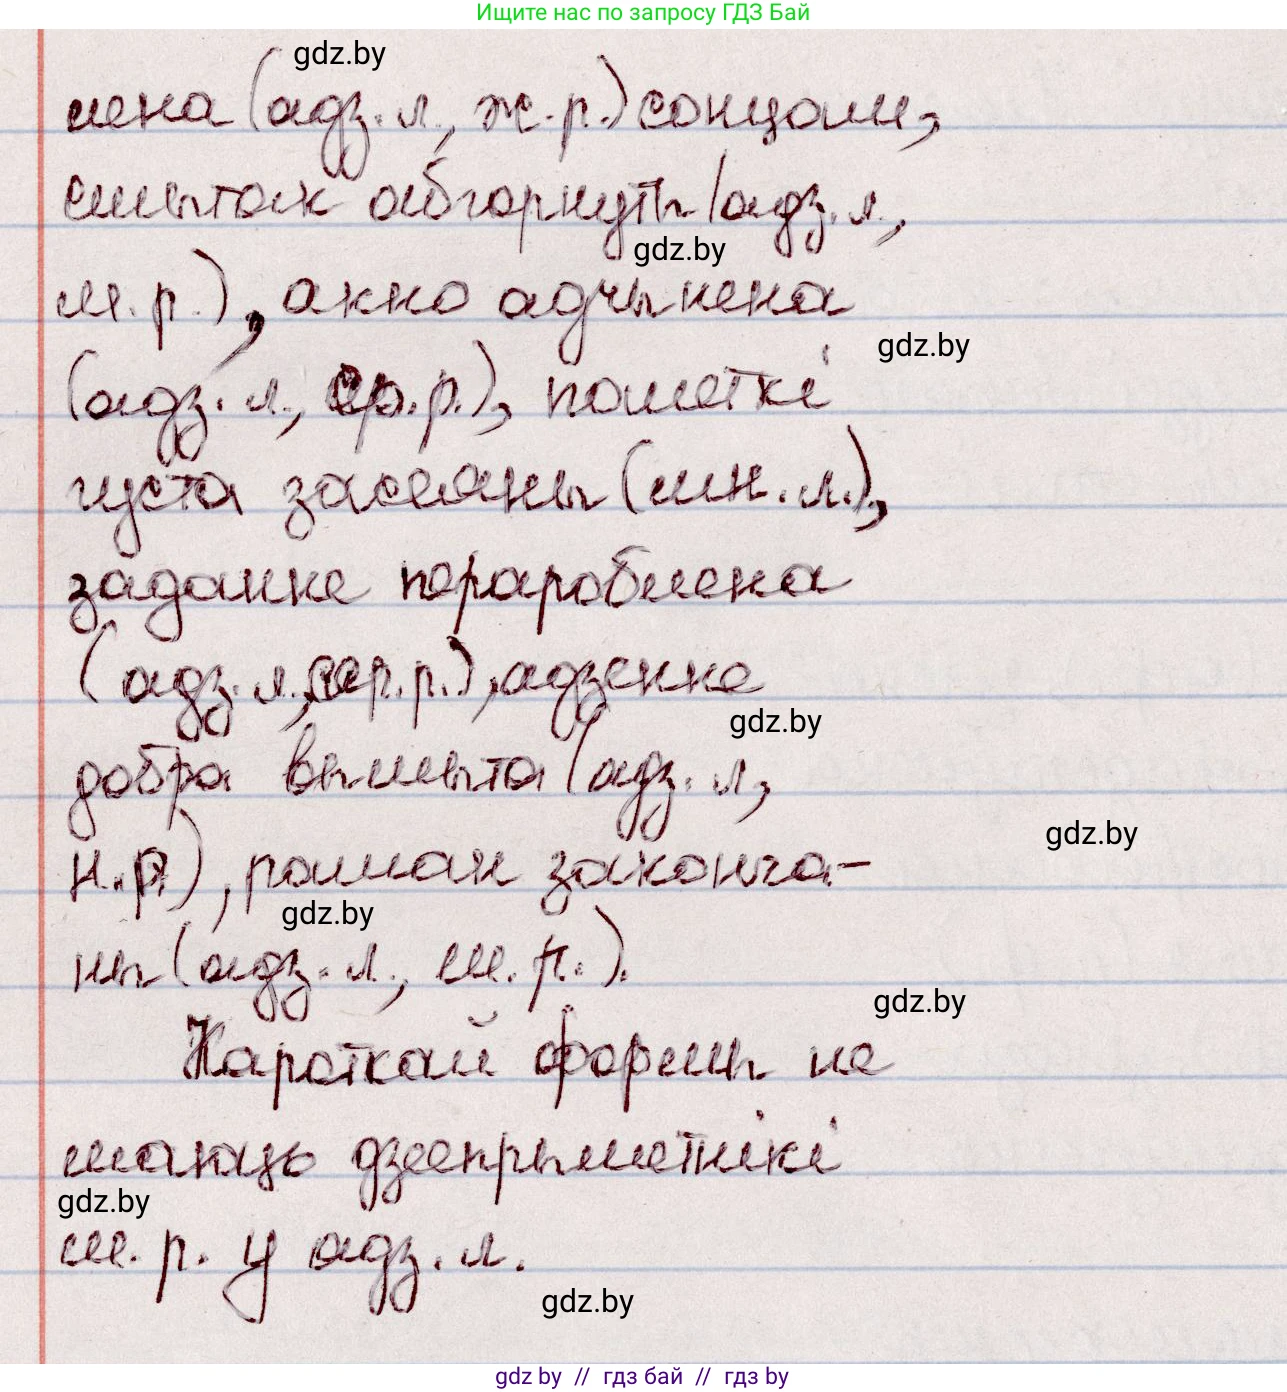 Ищите нас по запросу ГДЗ Бай
gdz.by
лена (адз.л., ж.р.) сонцам,
смытак абгорнуты (адз.л.,
gdz.by
м.р.), акно адчынена
gdz.by
(адз.л., ср.р.), палеткі
густа засеяны (мн.л.),
заданне перароблена
(адз.л., сяр.р.), адзенне
gdz.by
добра вымыта (адз.л,
gdz.by
н.р.), раман законча-
gdz.by
ны (адз.л., м.р.).
gdz.by
Кароткай формы не
маюць дзеепрыметнікі
gdz.by
м.р. у адз.л.
gdz.by
gdz.by // гдз бай // гдз by